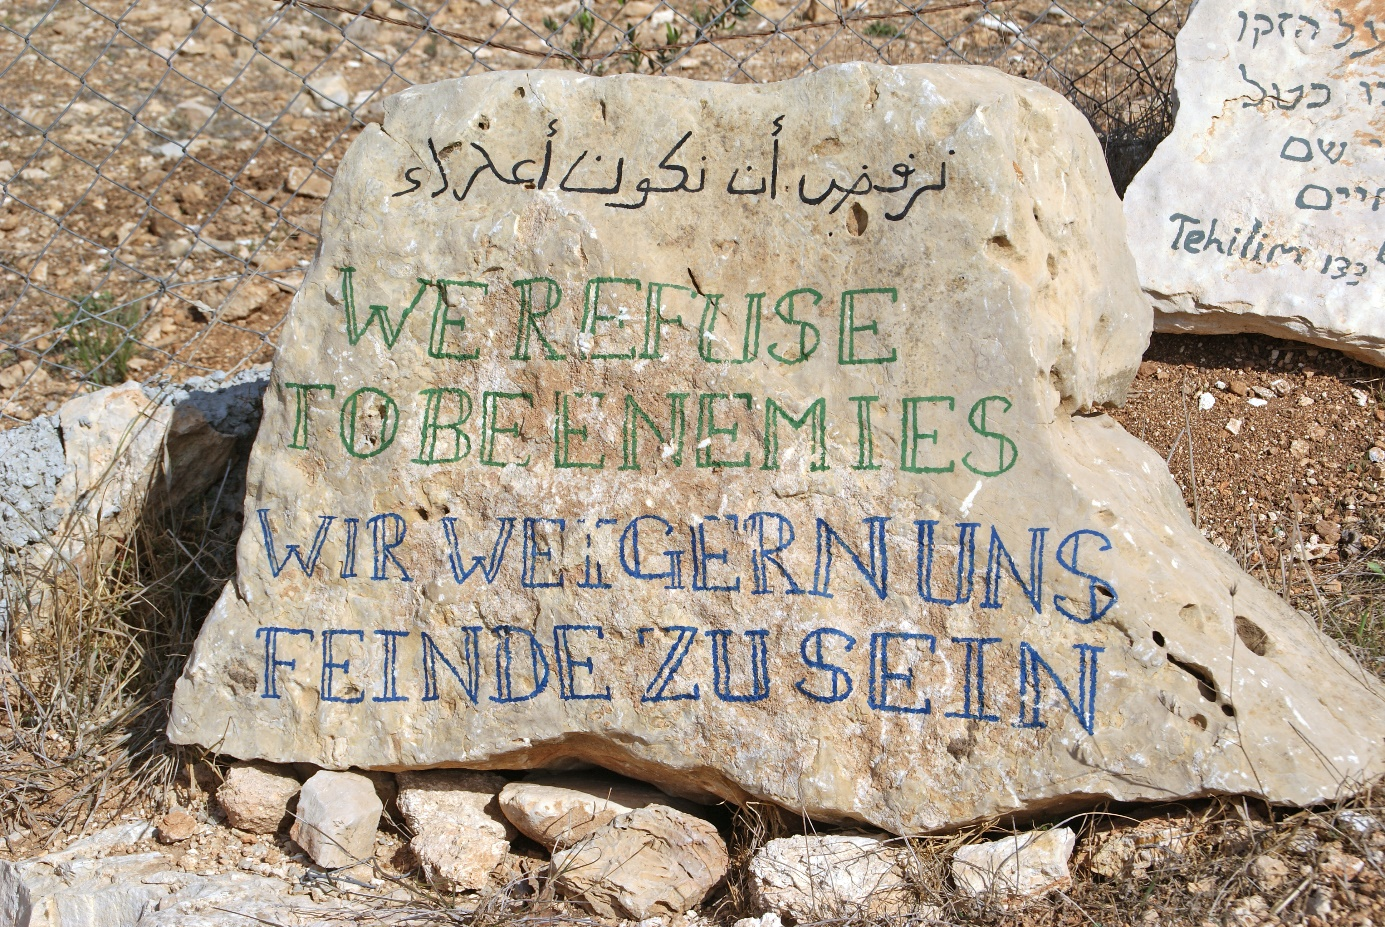 نرفض أن نكون أعداء
WE REFUSE
TO BE ENEMIES
WIR WEIGERN UNS
FEINDE ZU SEIN
הזקן
כטל
שם
חיים
Tehilim 133